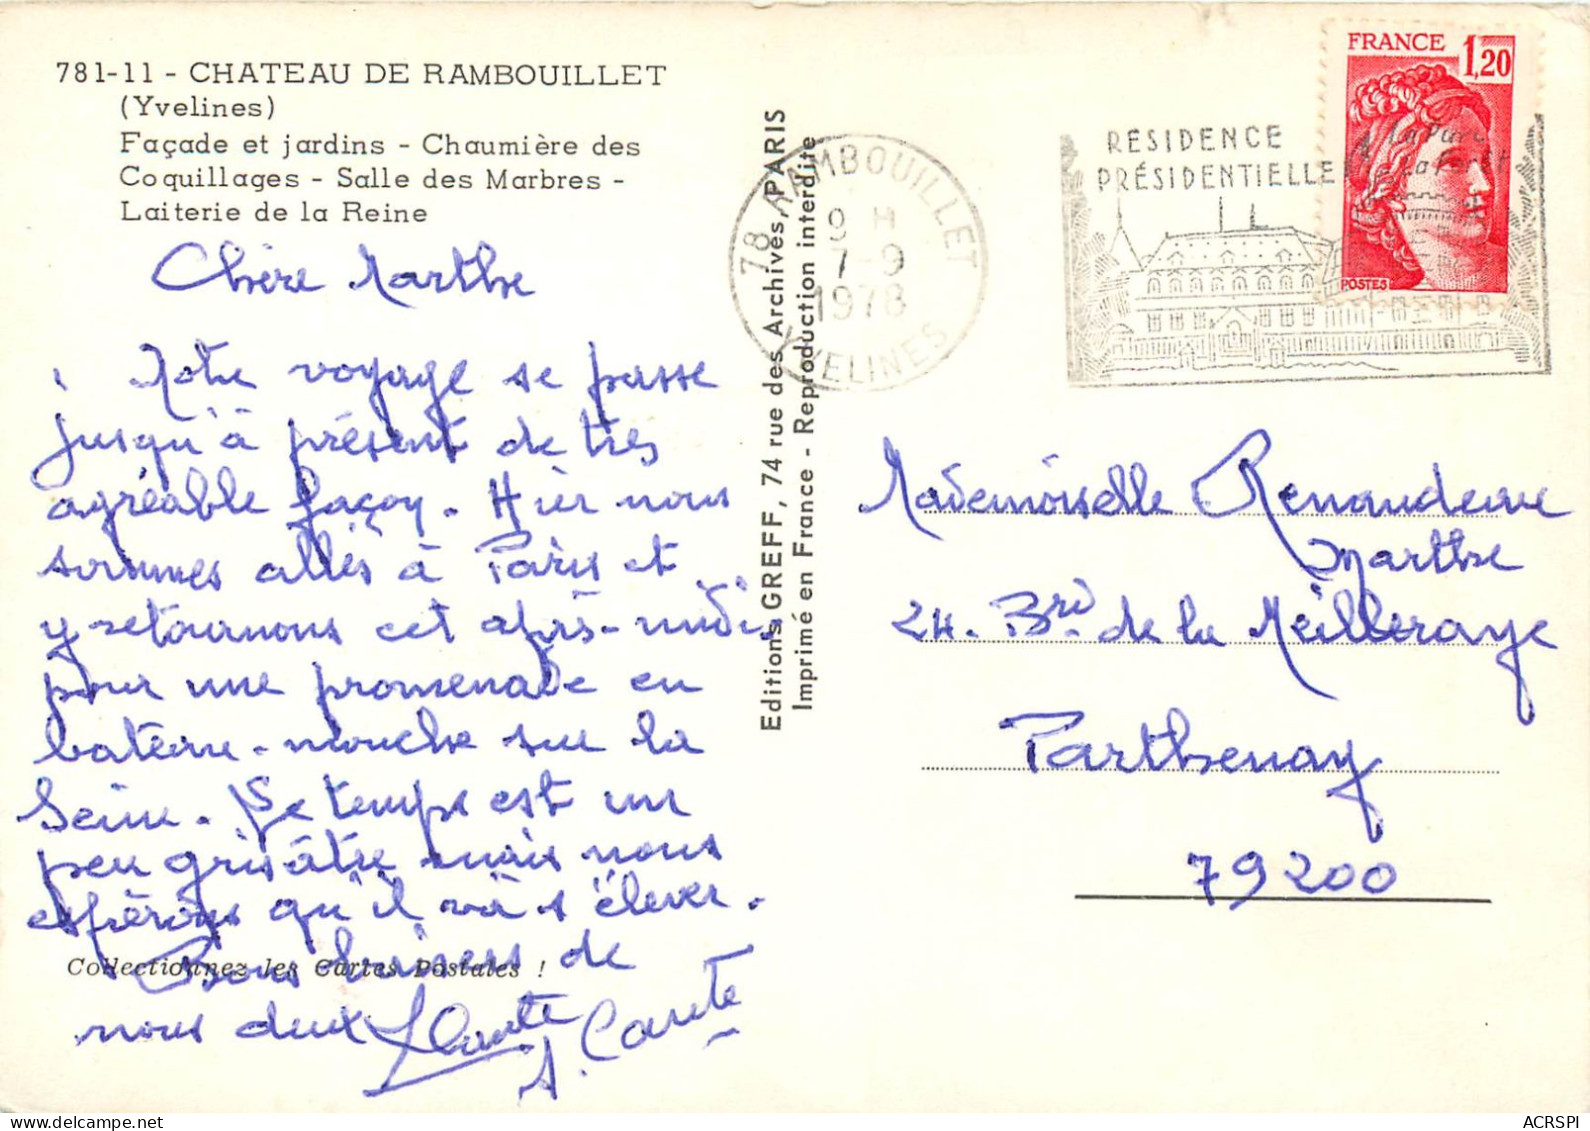 781-11 - CHATEAU DE RAMBOUILLET
(Yvelines)
Façade et jardins - Chaumière des
Coquillages - Salle des Marbres -
Laiterie de la Reine
Chère Marthe
Notre voyage se passe
jusqu'à présent de très
agréable façon. Hier nous
sommes allés à Paris et
y retournons cet après-midi
pour une promenade en
bateau-mouche sur la
Seine. Le temps est un
peu grisâtre mais nous
espérons qu'il va s'élever.
Bons baisers de
nous deux
Collectionnez les Cartes Postales !
Editions GREFF, 74 rue des Archives, PARIS
Imprimé en France - Reproduction interdite
78 RAMBOUILLET
9 H
7-9
1978
YVELINES
RESIDENCE
PRÉSIDENTIELLE
FRANCE 1,20
POSTES
Mademoiselle Renaudeau
Marthe
24. Brd de la Meilleraye
Parthenay
79200
ACRSPI